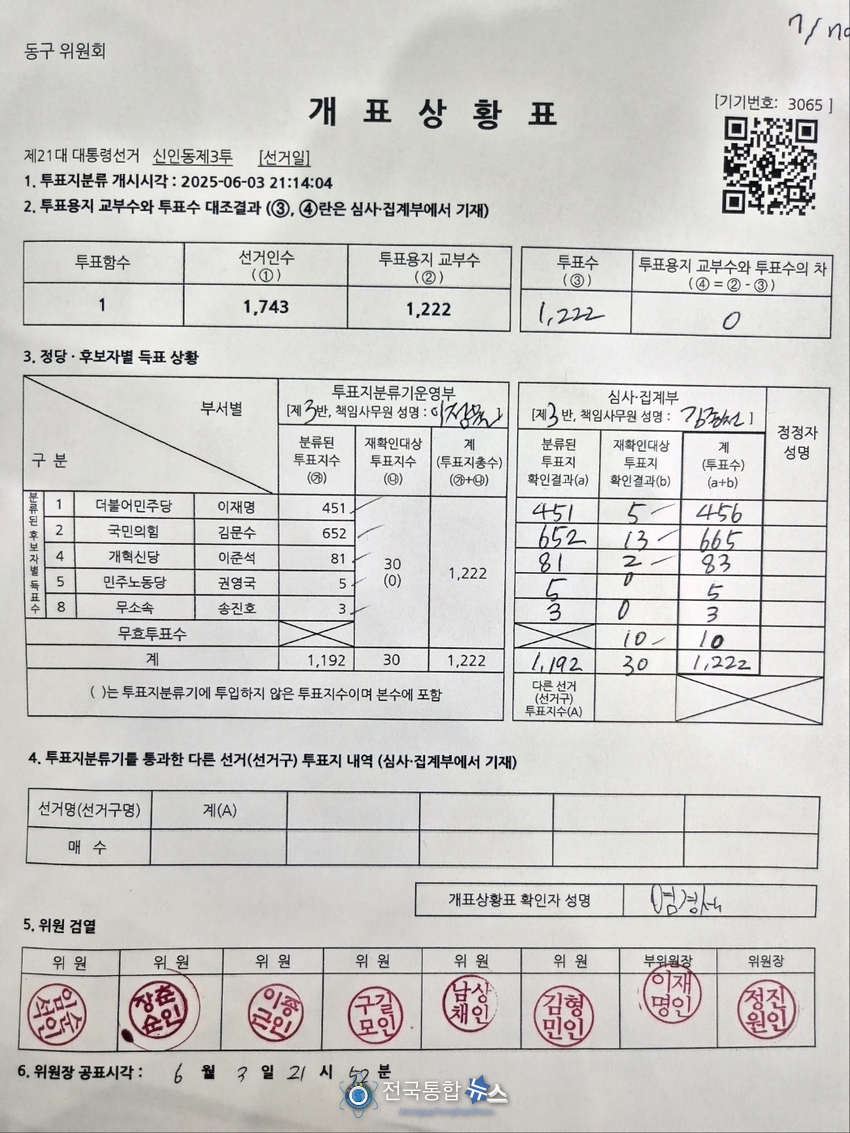 동구 위원회
개 표 상 황 표
[기기번호: 3065 ]
제21대 대통령선거 신인동제3투 [선거일]
1. 투표지분류 개시시각 : 2025-06-03 21:14:04
2. 투표용지 교부수와 투표수 대조결과 (③, ④란은 심사·집계부에서 기재)
투표함수 선거인수 (①) 투표용지 교부수 (②) 투표수 (③) 투표용지 교부수와 투표수의 차 (④ = ② - ③)
1 1,743 1,222 1,222 0
3. 정당 · 후보자별 득표 상황
부서별
구 분
투표지분류기운영부
[제 3 반, 책임사무원 성명 :
심사·집계부
[제 3 반, 책임사무원 성명 : ]
정정자 성명
분류된 투표지수 (㉮) 재확인대상 투표지수 (㉯) 계 (투표지총수) (㉮+㉯) 분류된 투표지 확인결과(a) 재확인대상 투표지 확인결과(b) 계 (투표수) (a+b)
분류된 후보자별 득표수
1 더불어민주당 이재명 451 451 5 456
2 국민의힘 김문수 652 652 13 665
4 개혁신당 이준석 81 81 2 83
30 (0) 1,222
5 민주노동당 권영국 5 5 0 5
8 무소속 송진호 3 3 0 3
무효투표수 10 10
계 1,192 30 1,222 1,192 30 1,222
( )는 투표지분류기에 투입하지 않은 투표지수이며 본수에 포함
다른 선거 (선거구) 투표지수(A)
4. 투표지분류기를 통과한 다른 선거(선거구) 투표지 내역 (심사·집계부에서 기재)
선거명(선거구명) 계(A)
매 수
개표상황표 확인자 성명
5. 위원 검열
위 원 위 원 위 원 위 원 위 원 위 원 부위원장 위원장
장춘순인 이종규인 구길모인 남상채인 김형민인 이재명인 정진원인
6. 위원장 공표시각 : 6 월 3 일 21 시 52 분
전국통합뉴스